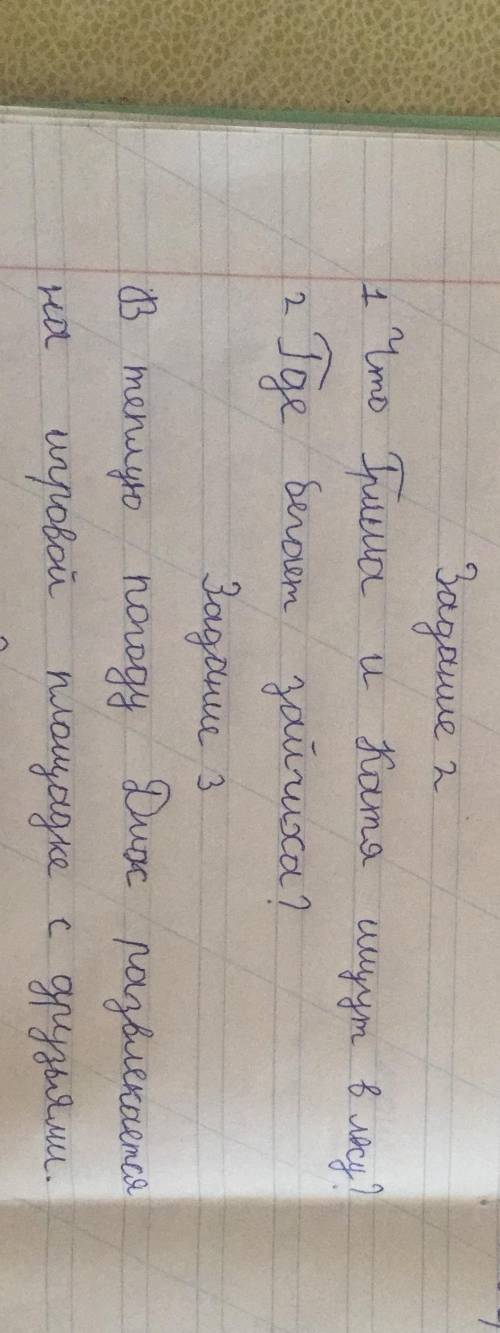 Задание 2
1 Что Гриша и Катя ищут в лесу?
2 Где бегает зайчиха?
Задание 3
В теплую погоду Димас развлекается
на игровой площадке с друзьями.